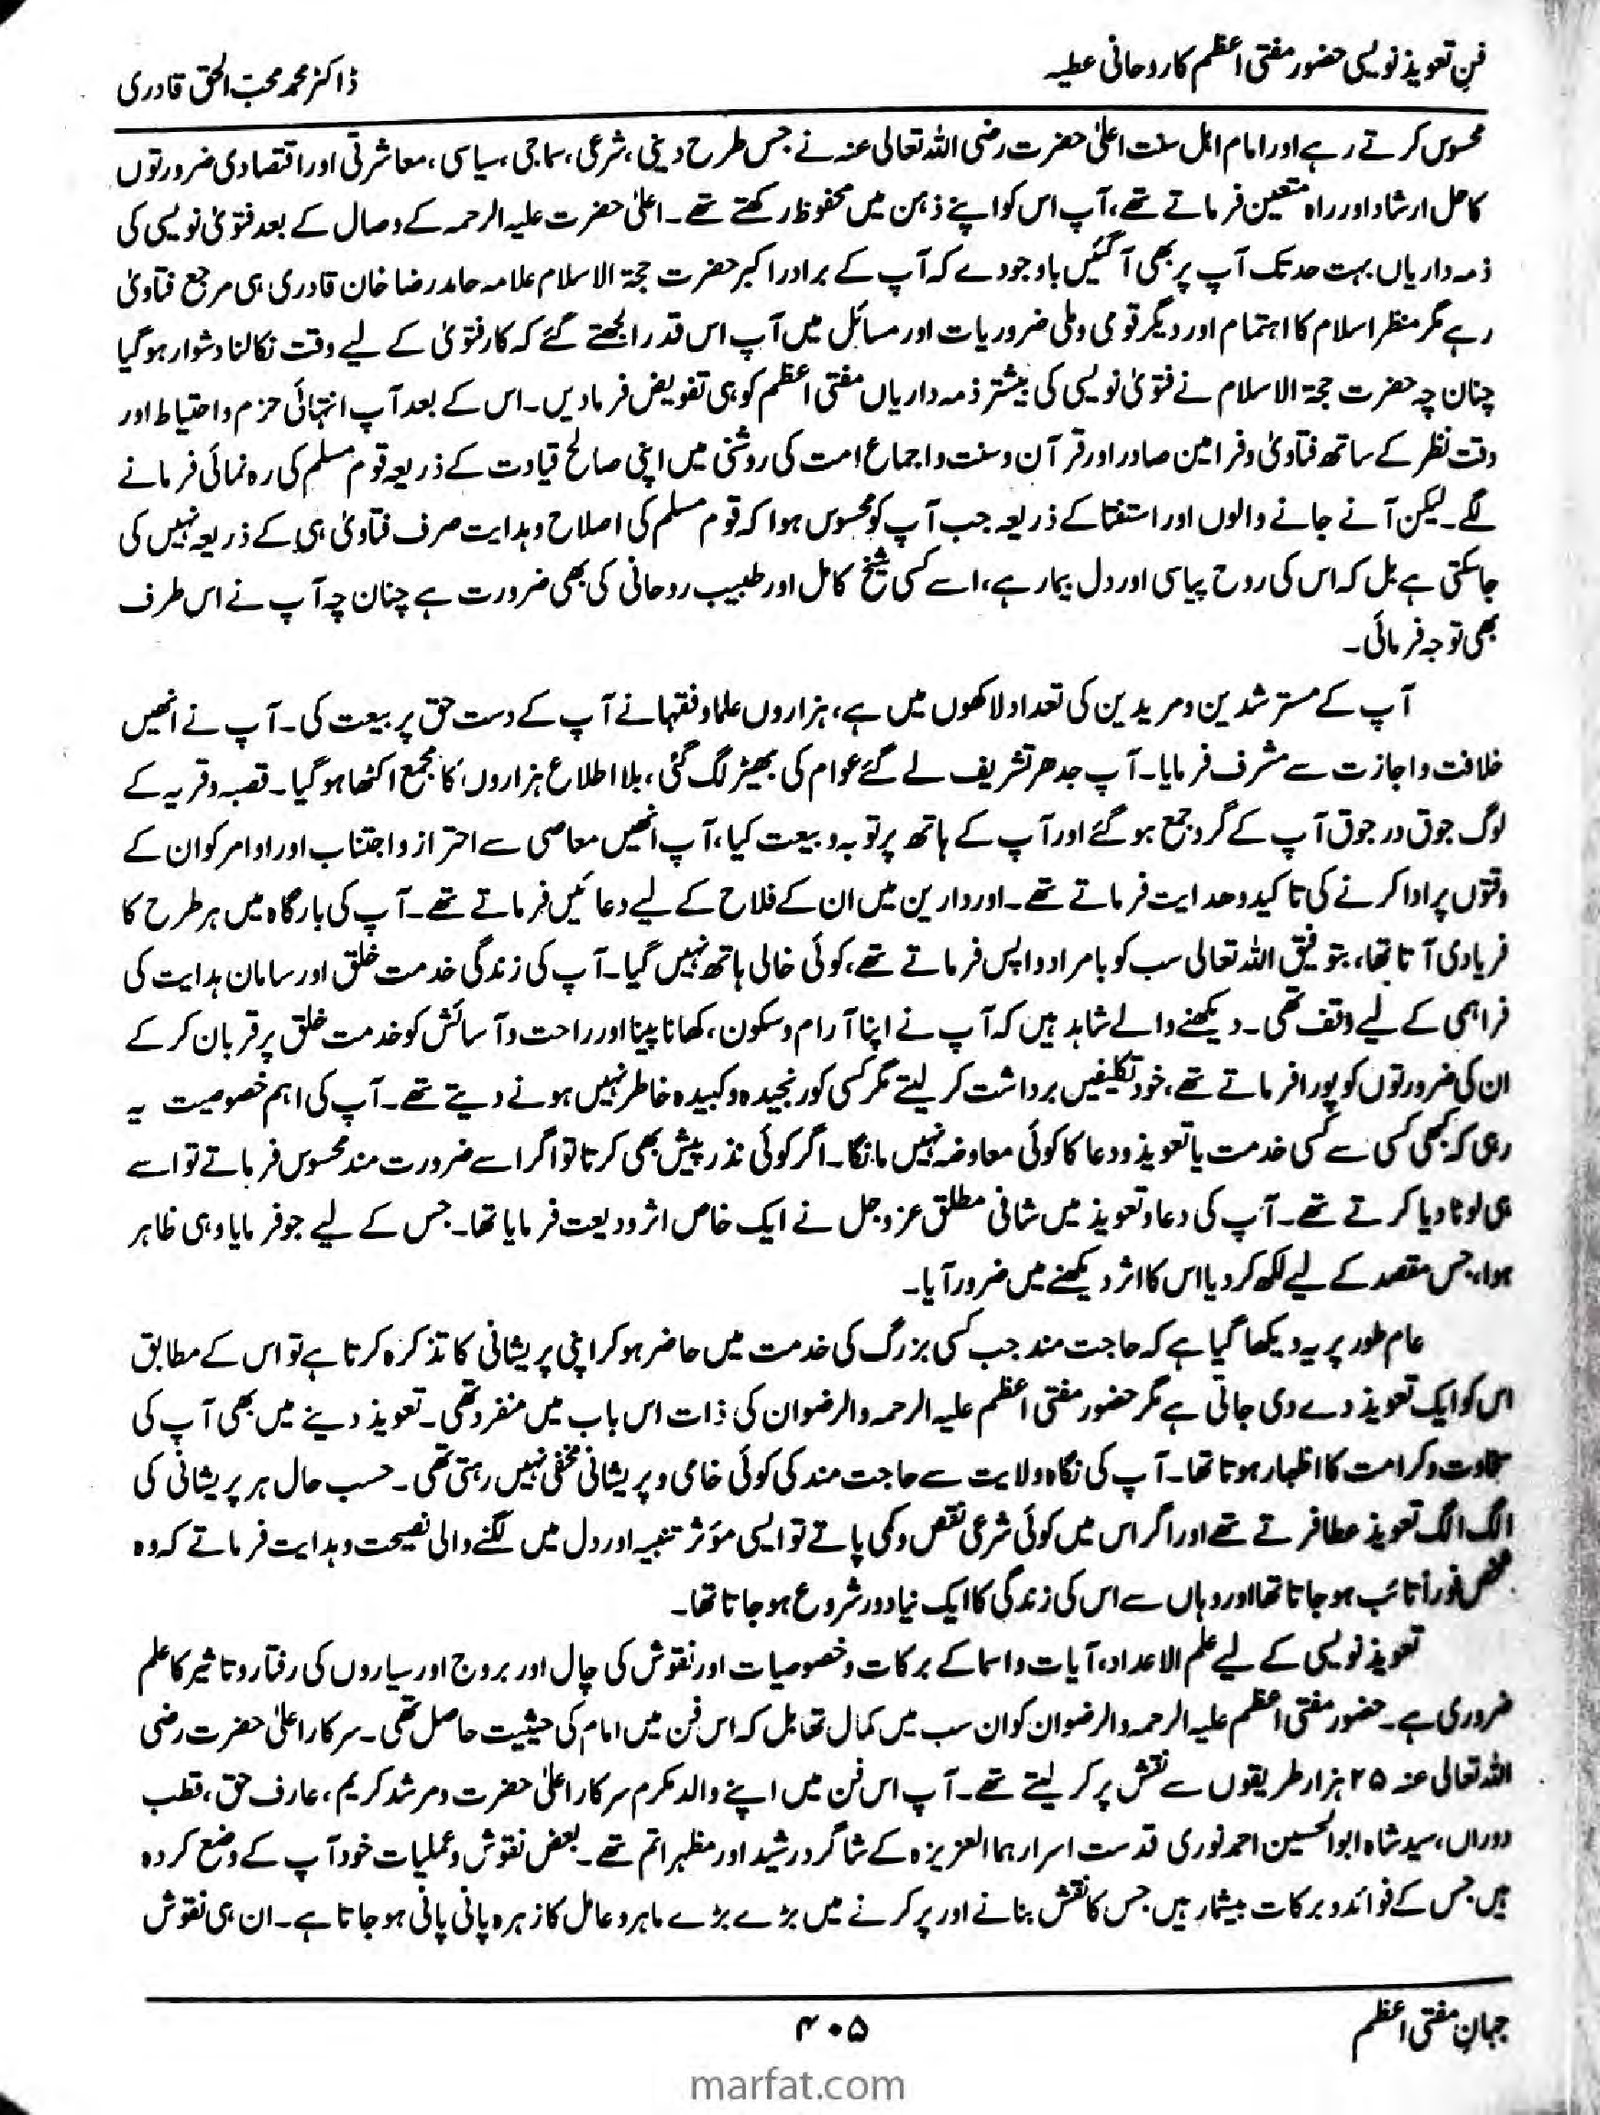 فنِ تعویذ نویسی حضور مفتی اعظم کا روحانی عطیہ
ڈاکٹر محمد محبّ الحق قادری
محسوس کرتے رہے اور امام اہل سنت اعلیٰ حضرت رضی اللہ تعالی عنہ نے جس طرح دینی، شرعی، سماجی، سیاسی، معاشرتی اور اقتصادی ضرورتوں
کا حل ارشاد اور راہ متعین فرماتے تھے، آپ اس کو اپنے ذہن میں محفوظ رکھتے تھے۔ اعلیٰ حضرت علیہ الرحمہ کے وصال کے بعد فتویٰ نویسی کی
ذمہ داریاں بہت حد تک آپ پر بھی آگئیں باوجودے کہ آپ کے برادر اکبر حضرت حجۃ الاسلام علامہ حامد رضا خان قادری ہی مرجع فتاویٰ
رہے مگر منظر اسلام کا اہتمام اور دیگر قومی و ملی ضروریات اور مسائل میں آپ اس قدر الجھتے گئے کہ کار فتویٰ کے لیے وقت نکالنا دشوار ہو گیا
چنان چہ حضرت حجۃ الاسلام نے فتویٰ نویسی کی بیشتر ذمہ داریاں مفتی اعظم کو ہی تفویض فرمادیں۔ اس کے بعد آپ انتہائی حزم و احتیاط اور
دقت نظر کے ساتھ فتاویٰ و فرامین صادر اور قرآن و سنت و اجماع امت کی روشنی میں اپنی صالح قیادت کے ذریعہ قوم مسلم کی رہ نمائی فرمانے
لگے۔ لیکن آنے جانے والوں اور استفتا کے ذریعہ جب آپ کو محسوس ہوا کہ قوم مسلم کی اصلاح و ہدایت صرف فتاویٰ ہی کے ذریعہ نہیں کی
جاسکتی ہے بل کہ اس کی روح پیاسی اور دل بیمار ہے، اسے کسی شیخ کامل اور طبیب روحانی کی بھی ضرورت ہے چنان چہ آپ نے اس طرف
بھی توجہ فرمائی۔
آپ کے مسترشدین و مریدین کی تعداد لاکھوں میں ہے، ہزاروں علما و فقہا نے آپ کے دست حق پر بیعت کی۔ آپ نے انھیں
خلافت و اجازت سے مشرف فرمایا۔ آپ جدھر تشریف لے گئے عوام کی بھیڑ لگ گئی، بلا اطلاع ہزاروں کا مجمع اکٹھا ہو گیا۔ قصبہ و قریہ کے
لوگ جوق در جوق آپ کے گرد جمع ہو گئے اور آپ کے ہاتھ پر توبہ و بیعت کیا، آپ انھیں معاصی سے احتراز و اجتناب اور اوامر کو ان کے
وقتوں پر ادا کرنے کی تاکید و ھدایت فرماتے تھے۔ اور دارین میں ان کے فلاح کے لیے دعائیں فرماتے تھے۔ آپ کی بارگاہ میں ہر طرح کا
فریادی آتا تھا، بتوفیق اللہ تعالی سب کو بامراد واپس فرماتے تھے، کوئی خالی ہاتھ نہیں گیا۔ آپ کی زندگی خدمت خلق اور سامان ہدایت کی
فراہمی کے لیے وقف تھی۔ دیکھنے والے شاہد ہیں کہ آپ نے اپنا آرام و سکون، کھانا پینا اور راحت و آسائش کو خدمت خلق پر قربان کر کے
ان کی ضرورتوں کو پورا فرماتے تھے، خود تکلیفیں برداشت کر لیتے مگر کسی کو رنجیدہ و کبیدہ خاطر نہیں ہونے دیتے تھے۔ آپ کی اہم خصوصیت یہ
رہی کہ کبھی کسی سے کسی خدمت یا تعویذ و دعا کا کوئی معاوضہ نہیں مانگا۔ اگر کوئی نذر پیش بھی کرتا تو اگر اسے ضرورت مند محسوس فرماتے تو اسے
ہی لوٹا دیا کرتے تھے۔ آپ کی دعا و تعویذ میں شافی مطلق عزوجل نے ایک خاص اثر ودیعت فرمایا تھا۔ جس کے لیے جو فرمایا وہی ظاہر
ہوا، جس مقصد کے لیے لکھ کر دیا اس کا اثر دیکھنے میں ضرور آیا۔
عام طور پر یہ دیکھا گیا ہے کہ حاجت مند جب کسی بزرگ کی خدمت میں حاضر ہو کر اپنی پریشانی کا تذکرہ کرتا ہے تو اس کے مطابق
اس کو ایک تعویذ دے دی جاتی ہے مگر حضور مفتی اعظم علیہ الرحمہ والرضوان کی ذات اس باب میں منفرد تھی۔ تعویذ دینے میں بھی آپ کی
سخاوت و کرامت کا اظہار ہوتا تھا۔ آپ کی نگاہ ولایت سے حاجت مند کی کوئی خامی و پریشانی مخفی نہیں رہتی تھی۔ حسب حال ہر پریشانی کی
الگ الگ تعویذ عطا فرتے تھے اور اگر اس میں کوئی شرعی نقص و کمی پاتے تو ایسی مؤثر تنبیہ اور دل میں لگنے والی نصیحت و ہدایت فرماتے کہ وہ
شخص فوراً تائب ہو جاتا تھا اور وہاں سے اس کی زندگی کا ایک نیا دور شروع ہو جاتا تھا۔
تعویذ نویسی کے لیے علم الاعداد، آیات و اسما کے برکات و خصوصیات اور نقوش کی چال اور بروج اور سیاروں کی رفتار و تاثیر کا علم
ضروری ہے۔ حضور مفتی اعظم علیہ الرحمہ والرضوان کو ان سب میں کمال تھا بل کہ اس فن میں امام کی حیثیت حاصل تھی۔ سرکار اعلیٰ حضرت رضی
اللہ تعالی عنہ ۲۵ ہزار طریقوں سے نقش پر کر لیتے تھے۔ آپ اس فن میں اپنے والد مکرم سرکار اعلیٰ حضرت و مرشد کریم، عارف حق، قطب
دوراں، سید شاہ ابوالحسین احمد نوری قدست اسرارہما العزیزہ کے شاگرد رشید اور مظہر اتم تھے۔ بعض نقوش و عملیات خود آپ کے وضع کردہ
ہیں جس کے فوائد و برکات بیشمار ہیں جس کا نقش بنانے اور پر کرنے میں بڑے بڑے ماہر و عامل کا زہرہ پانی پانی ہو جاتا ہے۔ ان ہی نقوش
جہانِ مفتی اعظم
۴۰۵
marfat.com